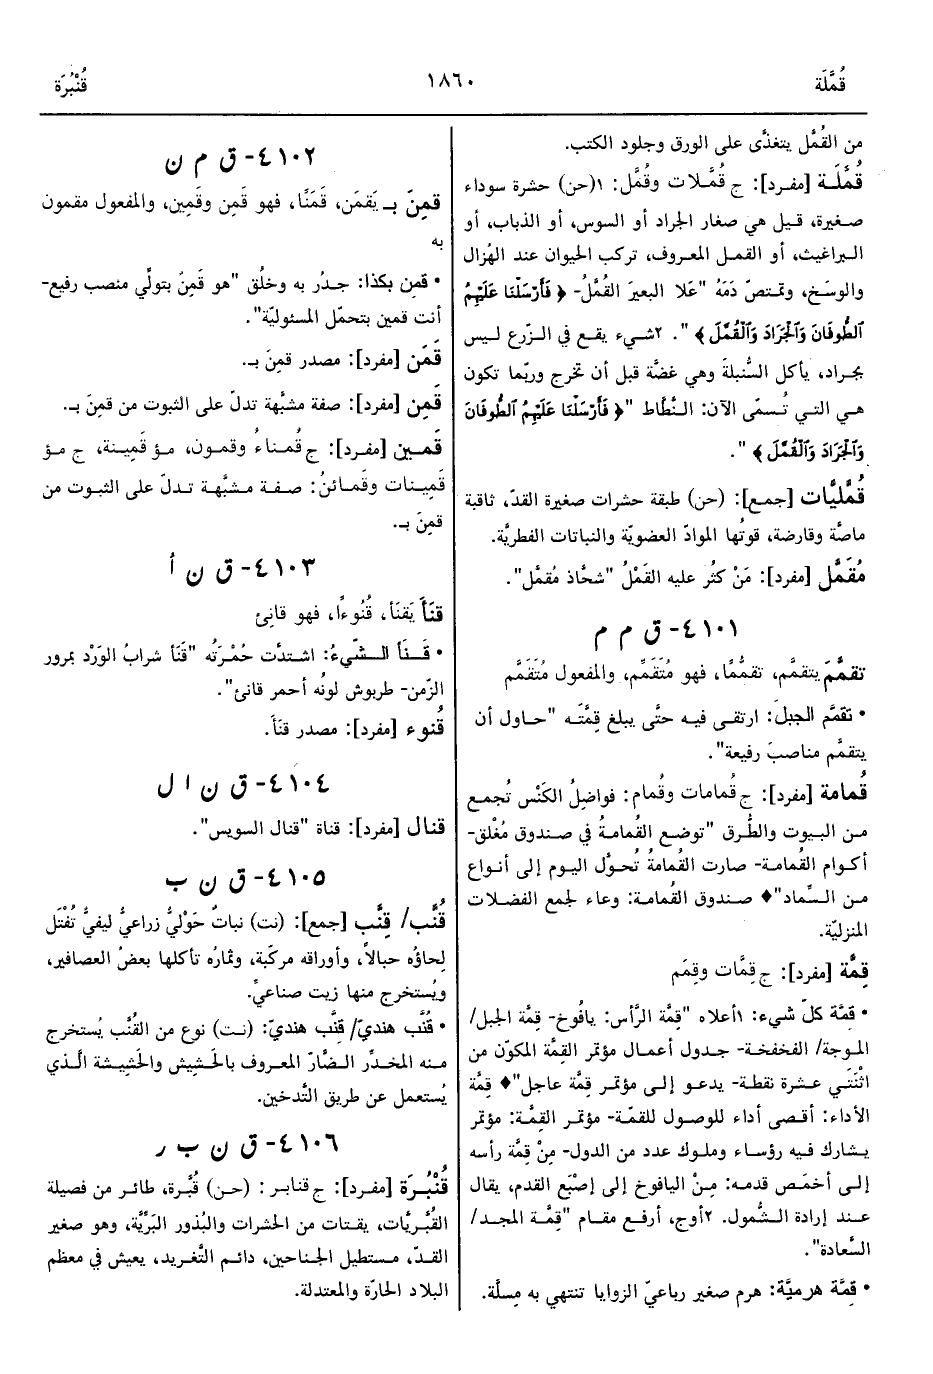 قُمَّلَة
١٨٦٠
قُنْبُرَة
من القُمَّل يتغذَّى على الورق وجلود الكتب.
قُمَّلَة [مفرد]: ج قُمَّلات وقُمَّل: ١(حن) حشرة سوداء
صغيرة، قيل هي صغار الجراد أو السوس، أو الذباب، أو
البراغيث، أو القمل المعروف، تركب الحيوان عند الهُزال
والوسَخ، وتمتصّ دَمَهُ "عَلا البعيرَ القُمَّلُ- ﴿ فَأَرْسَلْنَا عَلَيْهِمُ
الطُّوفَانَ وَالْجَرَادَ وَالْقُمَّلَ ﴾ ". ٢شيء يقع في الزّرع ليس
بجراد، يأكل السُّنبلةَ وهي غضَّة قبل أن تخرج وربّما تكون
هي التي تُسمّى الآن: النُّطَّاط "﴿ فَأَرْسَلْنَا عَلَيْهِمُ الطُّوفَانَ
وَالْجَرَادَ وَالْقُمَّلَ ﴾ ".
قُمَّليَّات [جمع]: (حن) طبقة حشرات صغيرة القدّ، ثاقبة
ماصَّة وقارضة، قوتُها الموادّ العضويَّة والنباتات الفطريَّة.
مُقَمَّل [مفرد]: مَنْ كثُر عليه القَمْلُ "شحَّاذ مُقمَّل".
٤١٠١- ق م م
تقمَّمَ يتقمَّم، تقمُّمًا، فهو مُتَقَمِّم، والمفعول مُتَقَمَّم
• تقمَّم الجبلَ: ارتقى فيه حتَّى يبلغ قِمَّتَه "حاول أن
يتقمَّم مناصبَ رفيعة".
قُمامة [مفرد]: ج قُمامات وقُمام: فواضِلُ الكَنْس تُجمع
من البيوت والطُّرق "توضع القُمامةُ في صندوق مُغْلق-
أكوام القُمامة- صارت القُمامةُ تُحوَّل اليوم إلى أنواع
من السِّماد"♦ صندوق القُمامة: وعاء لجمع الفضلات
المنزليّة.
قِمَّة [مفرد]: ج قِمَّات وقِمَم
• قمَّة كلّ شيء: ١أعلاه "قِمَّة الرَّأس: يافُوخ- قِمَّة الجبل/
الموجة/ الفخفخة- جدول أعمال مؤتمر القِمَّة المكوّن من
اثْنَتَي عشرة نقطة- يدعو إلى مؤتمر قِمَّة عاجل"♦ قِمَّة
الأداء: أقصى أداء للوصول للقمّة- مؤتمر القِمَّة: مؤتمر
يشارك فيه رؤساء وملوك عدد من الدول- مِنْ قِمَّة رأسه
إلى أخمَص قدمه: مِنْ اليافوخ إلى إصْبَع القدم، يقال
عند إرادة الشُّمول. ٢أوج، أرفع مقام "قِمَّة المجد/
السَّعادة".
• قِمَّة هرميَّة: هرم صغير رباعيّ الزوايا تنتهي به مِسلَّة.
٤١٠٢- ق م ن
قمِنَ بـ يَقمَن، قَمَنًا، فهو قَمِن وقَمِين، والمفعول مقمون
به
• قمِن بكذا: جدُر به وخلُق "هو قَمِنٌ بتولِّي منصب رفيع-
أنت قمين بتحمّل المسئوليَّة".
قَمَن [مفرد]: مصدر قمِنَ بـ.
قَمِن [مفرد]: صفة مشبَّهة تدلّ على الثبوت من قمِنَ بـ.
قَمين [مفرد]: ج قُمناءُ وقمون، مؤ قَمِينة، ج مؤ
قَمِينات وقَمائنُ: صفة مشبَّهة تدلّ على الثبوت من
قمِنَ بـ.
٤١٠٣- ق ن أ
قنَأَ يَقنَأ، قُنُوءًا، فهو قانِئ
• قَنَأَ الشّيءُ: اشتدَّت حُمْرَتُه "قنَأ شرابُ الوَرْد بمرور
الزّمن- طربوش لونُه أحمر قانئ".
قُنوء [مفرد]: مصدر قنَأَ.
٤١٠٤- ق ن ا ل
قنال [مفرد]: قناة "قنال السويس".
٤١٠٥- ق ن ب
قُنَّب/ قِنَّب [جمع]: (نت) نباتٌ حَوْليٌّ زراعيٌّ ليفيٌّ تُفْتَل
لِحاؤُه حبالاً، وأوراقه مركّبة، وثمارُه تأكلها بعضُ العصافير،
ويُستخرج منها زيت صناعيّ.
• قُنَّب هنديّ/ قِنَّب هنديّ: (نت) نوع من القُنَّب يُستخرج
منه المخدِّر الضَّارّ المعروف بالحَشيش والحَشيشة الَّذي
يُستعمل عن طريق التَّدخين.
٤١٠٦- ق ن ب ر
قُنْبُرَة [مفرد]: ج قنابر: (حن) قُبَّرة، طائر من فصيلة
القُبَّريَّات، يقتات من الحشرات والبُذور البَرِّيَّة، وهو صغير
القدّ، مستطيل الجناحين، دائم التَّغريد، يعيش في معظم
البلاد الحارّة والمعتدلة.